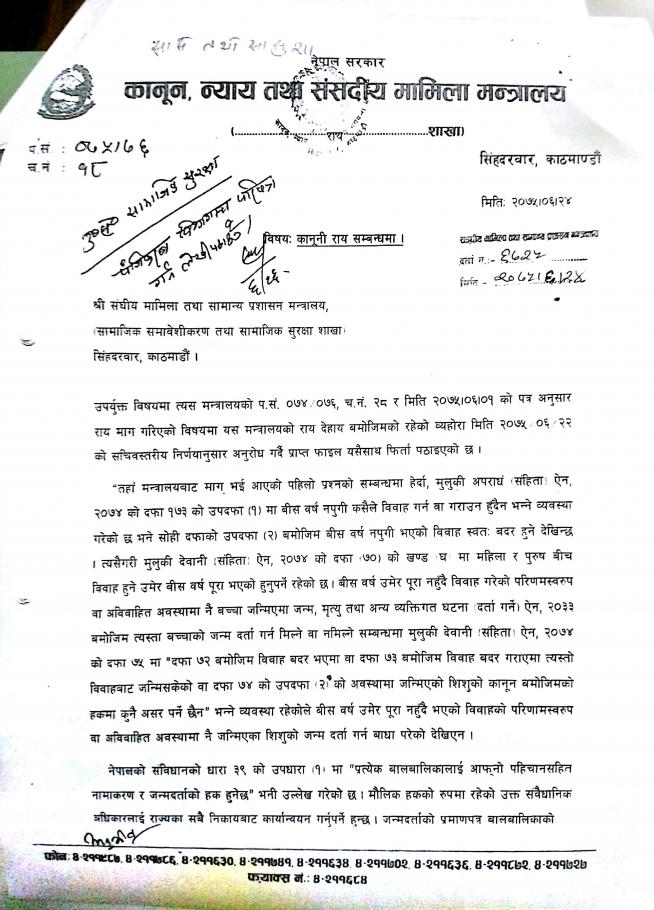 नेपाल सरकार
कानून, न्याय तथा संसदीय मामिला मन्त्रालय
(.......................राय.......................शाखा)
प.सं. : ०७५/७६
च.नं : १८
सिंहदरवार, काठमाण्डौं
मितिः २०७५।०६।२४
विषयः कानूनी राय सम्बन्धमा ।
श्री संघीय मामिला तथा सामान्य प्रशासन मन्त्रालय,
(सामाजिक समावेशीकरण तथा सामाजिक सुरक्षा शाखा)
सिंहदरवार, काठमाडौं ।
उपर्युक्त विषयमा त्यस मन्त्रालयको प.सं. ०७४/०७६, च.नं. २८ र मिति २०७५।०६।०१ को पत्र अनुसार
राय माग गरिएको विषयमा यस मन्त्रालयको राय देहाय बमोजिमको रहेको व्यहोरा मिति २०७५/०६/२२
को सचिवस्तरीय निर्णयानुसार अनुरोध गर्दै प्राप्त फाइल यसैसाथ फिर्ता पठाइएको छ ।
"तहां मन्त्रालयबाट माग भई आएको पहिलो प्रश्नको सम्बन्धमा हेर्दा, मुलुकी अपराध (संहिता) ऐन,
२०७४ को दफा १७३ को उपदफा (१) मा बीस वर्ष नपुगी कसैले विवाह गर्न वा गराउन हुँदैन भन्ने व्यवस्था
गरेको छ भने सोही दफाको उपदफा (२) बमोजिम बीस वर्ष नपुगी भएको विवाह स्वतः बदर हुने देखिन्छ
। त्यसैगरी मुलुकी देवानी (संहिता) ऐन, २०७४ को दफा (७०) को खण्ड (घ) मा महिला र पुरुष बीच
विवाह हुने उमेर बीस वर्ष पूरा भएको हुनुपर्ने रहेको छ। बीस वर्ष उमेर पूरा नहुँदै विवाह गरेको परिणामस्वरुप
वा अविवाहित अवस्थामा नै बच्चा जन्मिएमा जन्म, मृत्यु तथा अन्य व्यक्तिगत घटना (दर्ता गर्ने) ऐन, २०३३
बमोजिम त्यस्ता बच्चाको जन्म दर्ता गर्न मिल्ने वा नमिल्ने सम्बन्धमा मुलुकी देवानी (संहिता) ऐन, २०७४
को दफा ७५ मा "दफा ७२ बमोजिम विवाह बदर भएमा वा दफा ७३ बमोजिम विवाह बदर गराएमा त्यस्तो
विवाहबाट जन्मिसकेको वा दफा ७४ को उपदफा (२) को अवस्थामा जन्मिएको शिशुको कानून बमोजिमको
हकमा कुनै असर पर्ने छैन" भन्ने व्यवस्था रहेकोले बीस वर्ष उमेर पूरा नहुँदै भएको विवाहको परिणामस्वरुप
वा अविवाहित अवस्थामा नै जन्मिएका शिशुको जन्म दर्ता गर्न बाधा परेको देखिएन ।
नेपालको संविधानको धारा ३९ को उपधारा (१) मा "प्रत्येक बालबालिकालाई आफ्नो पहिचानसहित
नामाकरण र जन्मदर्ताको हक हुनेछ" भनी उल्लेख गरेको छ । मौलिक हकको रुपमा रहेको उक्त संवैधानिक
अधिकारलाई राज्यका सबै निकायबाट कार्यान्वयन गर्नुपर्ने हुन्छ । जन्मदर्ताको प्रमाणपत्र बालबालिकाको
फोनः ४-२११९८७, ४-२११७८६, ४-२११६३०, ४-२११७४१, ४-२११६३४, ४-२११७०२, ४-२११६३६, ४-२११८७२, ४-२११७२७
फ्याक्स नं.: ४-२११६८४